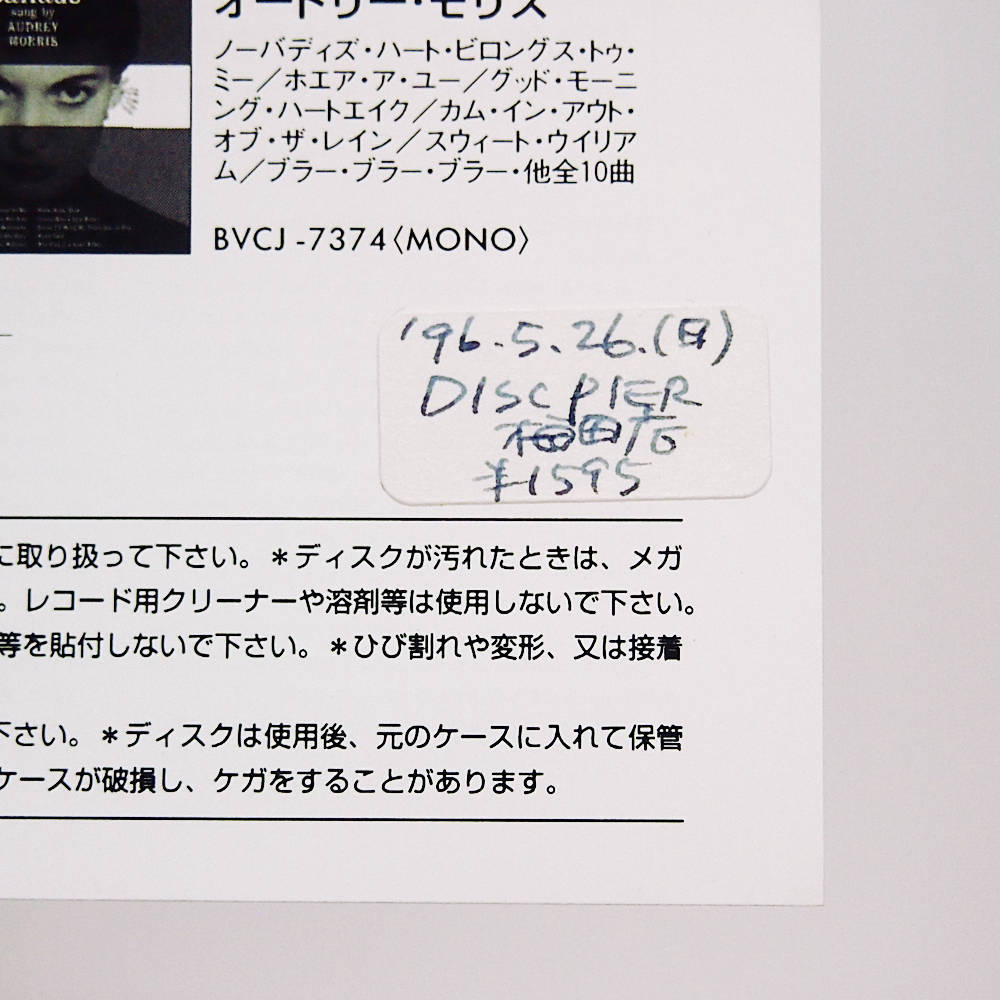 sung by
AUDREY
MORRIS
オードリー・モリス
ノーバディズ・ハート・ビロングス・トゥ・
ミー／ホエア・ア・ユー／グッド・モーニ
ング・ハートエイク／カム・イン・アウト・
オブ・ザ・レイン／スウィート・ウイリア
ム／ブラー・ブラー・ブラー・他全10曲
BVCJ-7374〈MONO〉
'96.5.26.(日)
DISC PIER
梅田店
¥1595
に取り扱って下さい。＊ディスクが汚れたときは、メガ
。レコード用クリーナーや溶剤等は使用しないで下さい。
等を貼付しないで下さい。＊ひび割れや変形、又は接着
下さい。＊ディスクは使用後、元のケースに入れて保管
ケースが破損し、ケガをすることがあります。